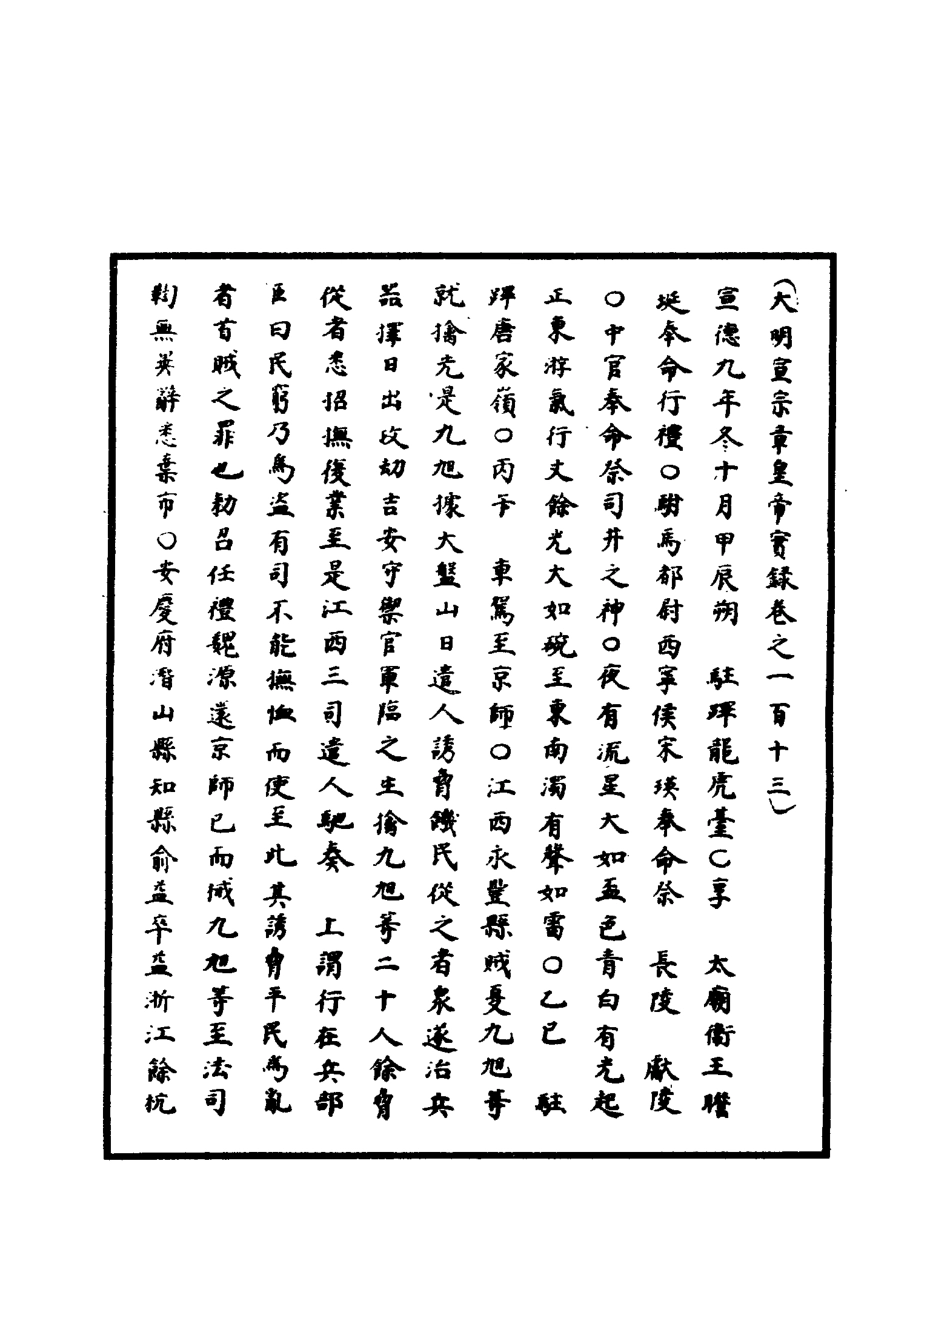 （大明宣宗章皇帝實錄卷之一百十三）
宣德九年冬十月甲辰朔　駐蹕龍虎臺○享　太廟衛王瞻
埏奉命行禮○駙馬都尉西寧侯宋瑛奉命祭　長陵　獻陵
○中官奉命祭司井之神○夜有流星大如盃色青白有光起
正東游氣行丈餘光大如碗至東南濁有聲如雷○乙巳　駐
蹕唐家嶺○丙午　車駕至京師○江西永豐縣賊夏九旭等
就擒先是九旭據大盤山日遣人誘脅饑民從之者衆遂治兵
器擇日出攻劫吉安守禦官軍臨之生擒九旭等二十人餘脅
從者悉招撫復業至是江西三司遣人馳奏　上謂行在兵部
臣曰民窮乃為盜有司不能撫恤而使至此其誘脅平民為亂
者首賊之罪也勑召任禮魏源還京師已而械九旭等至法司
鞫無異辭悉棄市○安慶府潛山縣知縣俞益卒益浙江餘杭